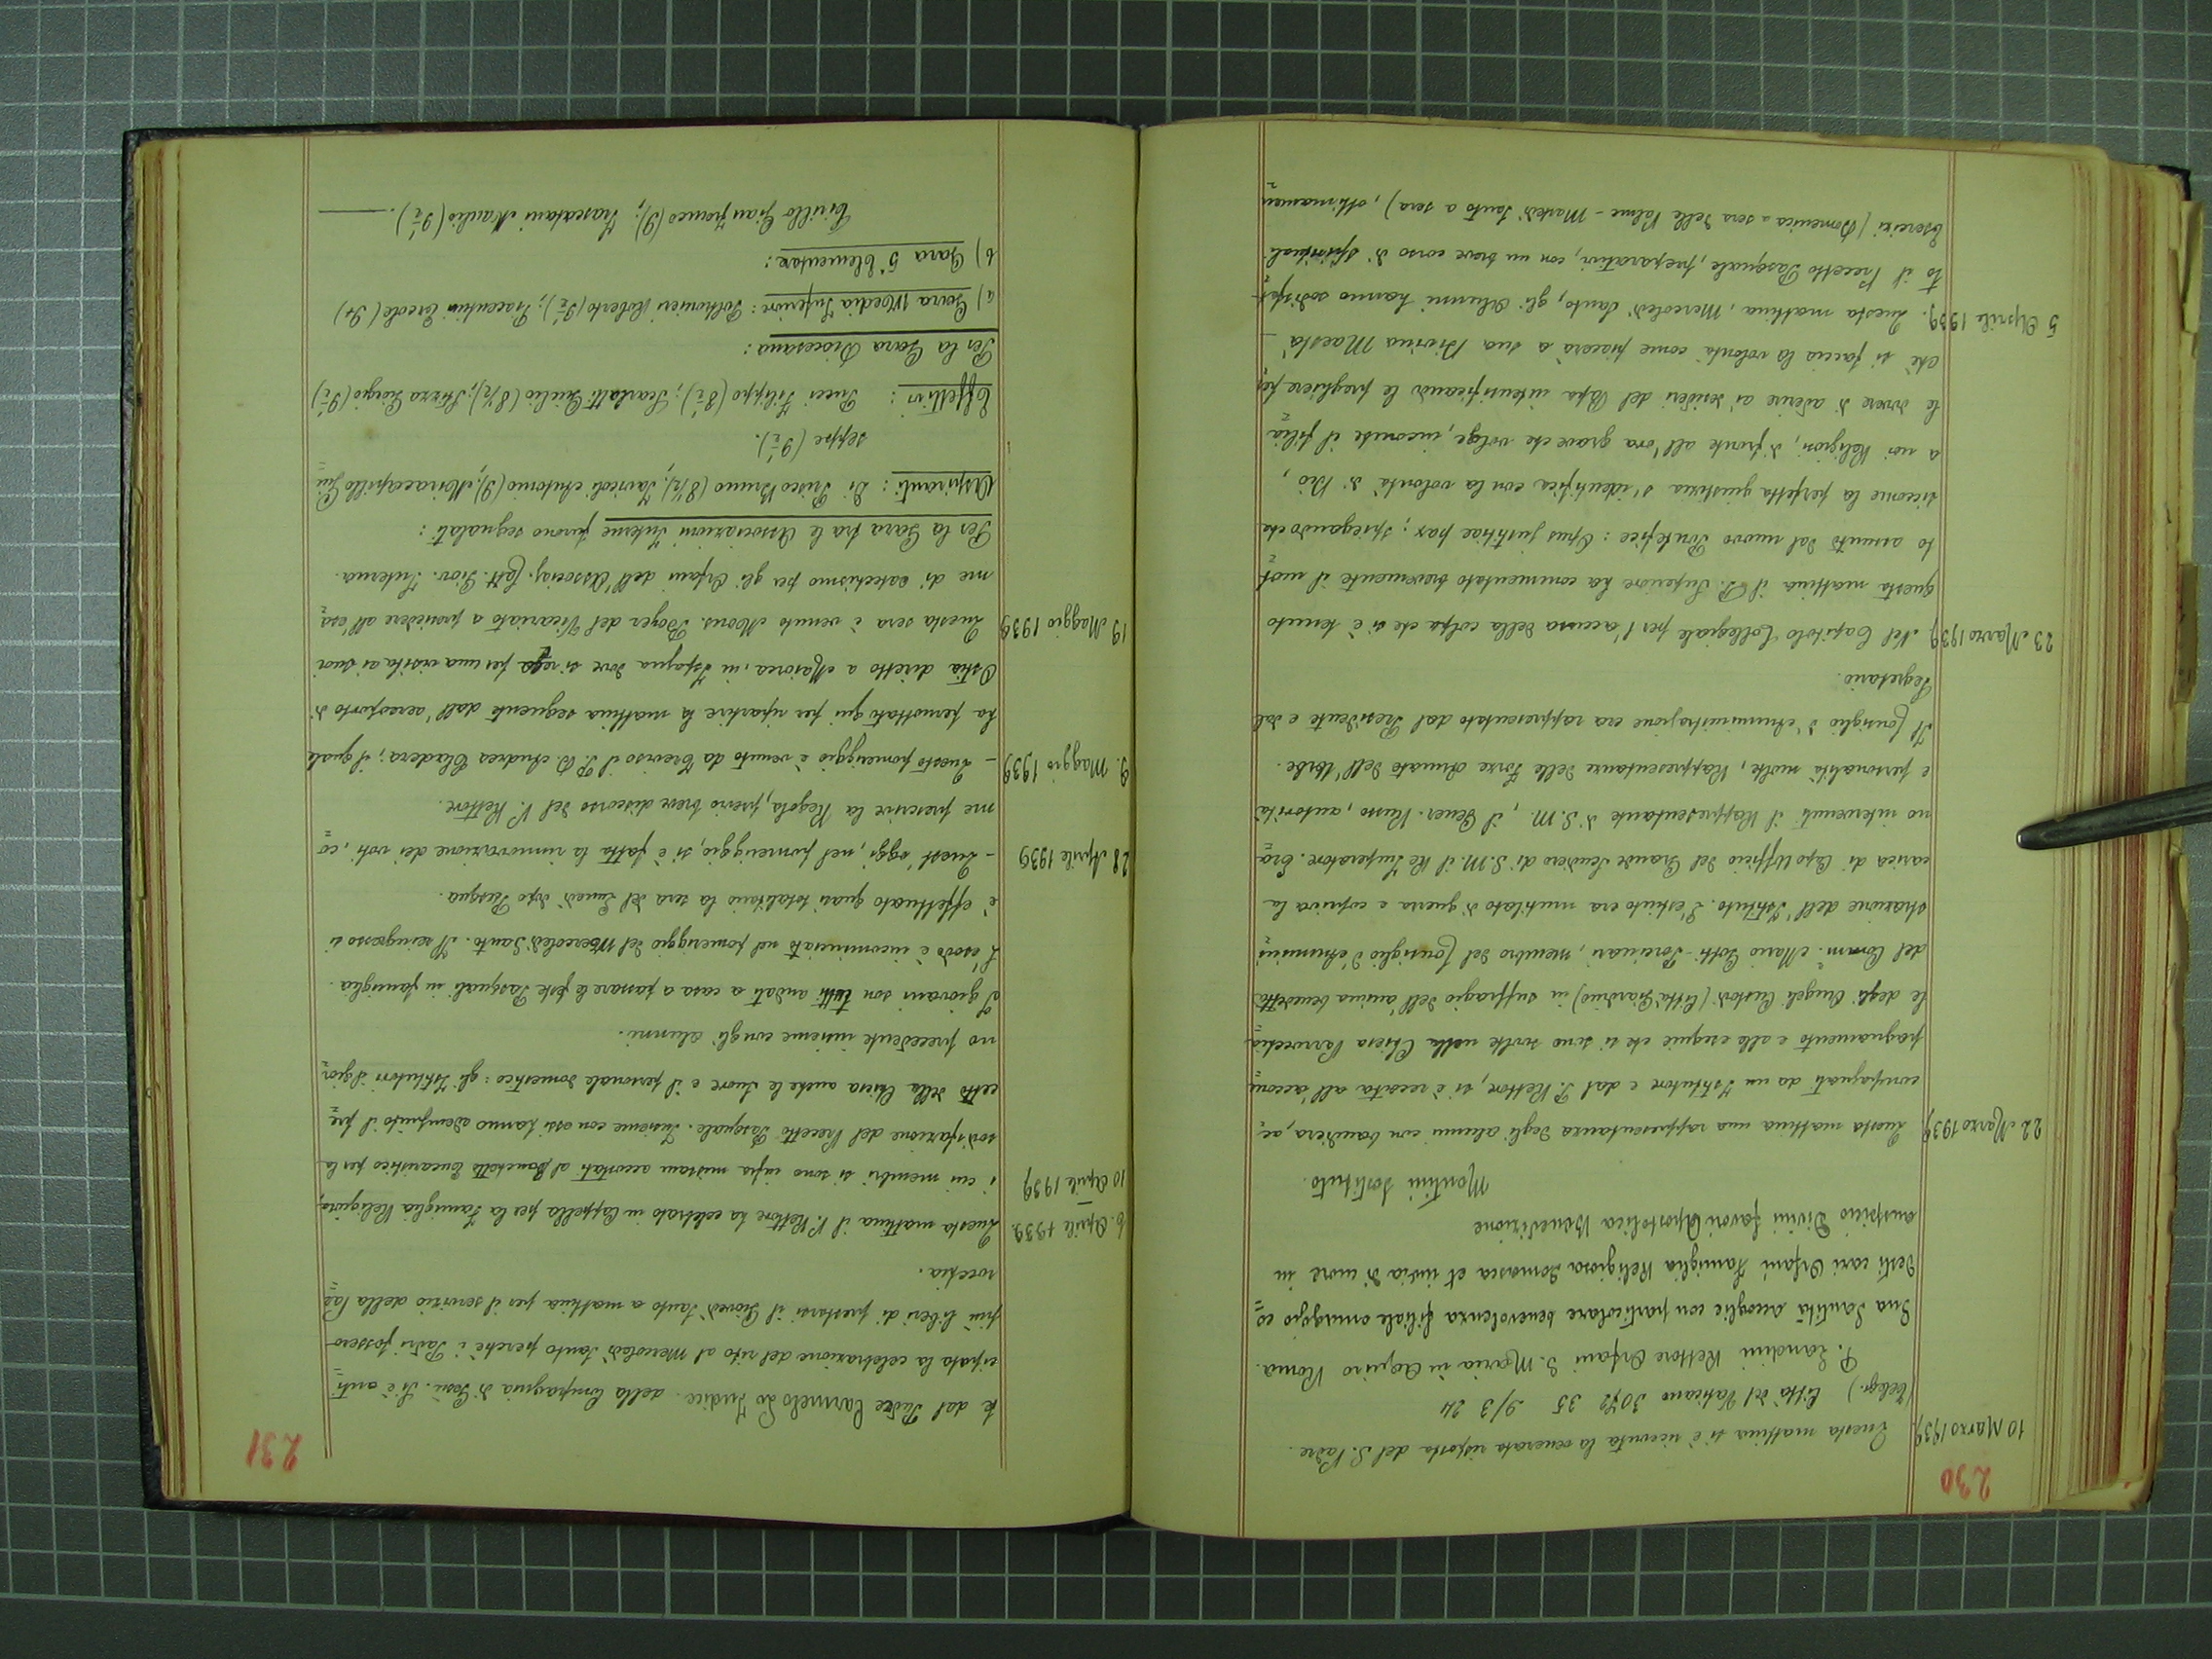 230
10 Marzo 1939. Questa mattina si è ricevuta la venerata risposta del S. Padre.
(Telegr.) Città del Vaticano 3072 35 9/3 24
P. Landini Rettore Orfani S. Maria in Aquiro Roma.
Sua Santità accoglie con particolare benevolenza filiale omaggio co
desti cari Orfani Famiglia Religiosa Somasca et invia di cuore in
auspicio Divini favori Apostolica Benedizione
Montini Sostituto.
22 Marzo 1939 Questa mattina una rappresentanza degli alunni con bandiera, ac=
compagnati da un Istitutore e dal P. Rettore, si è recata all'accom=
pagnamento e alle esequie che si sono svolte nella Chiesa Parrocchia=
le degli Angeli Custodi (Città Giardino) in suffragio dell'anima benedetta
del Comm. Mario Gotti-Porcinari, membro del Consiglio d'Ammini=
strazione dell'Istituto. L'estinto era mutilato di guerra e copriva la
carica di Capo Ufficio del Grande Scudiero di S. M. il Re Imperatore. Era=
no intervenuti il Rappresentante di S. M., il Gener. Russo, autorità
e personalità molte, Rappresentanze delle Forze Armate dell'Urbe.
Il Consiglio d'Amministrazione era rappresentato dal Presidente e dal
Segretario.
23 Marzo 1939 Nel Capitolo Collegiale per l'accusa della colpa che si è tenuto
questa mattina il P. Superiore ha commentato brevemente il mot=
to assunto dal nuovo Pontefice: Opus justitiae pax; spiegando che
siccome la perfetta giustizia s'identifica con la volontà di Dio,
a noi Religiosi, di fronte all'ora grave che volge, incombe il filia=
le dovere di aderire ai desideri del Papa intensificando le preghiere per=
chè si faccia la volontà come piacerà a Sua Divina Maestà. —
5 Aprile 1939. Questa mattina, Mercoledì Santo, gli Alunni hanno sodisfat=
to il Precetto Pasquale, preparativi, con un breve corso di Spirituali
Esercizi (Domenica a sera delle Palme - Martedì Santo a sera), ottimamen=
231
te dal Padre Carmelo Lo Judice della Compagnia di Gesù. Si è anti=
cipata la celebrazione del rito al Mercoledì Santo perchè i Padri fossero
più liberi di prestarsi il Giovedì Santo a mattina per il servizio della Par=
rocchia.
6. Aprile 1939. Questa mattina il P. Rettore ha celebrato in Cappella per la Famiglia Religiosa,
10 Aprile 1939 i cui membri si sono accostati al Banchetto Eucaristico per la
sodisfazione del Precetto Pasquale. Insieme con essi hanno adempiuto il pre=
cetto della Chiesa anche le Suore e il personale domestico: gli Istitutori il gior=
no precedente insieme cogli alunni.
I giovani son tutti andati a casa a passare le feste Pasquali in famiglia.
L'esodo è incominciato nel pomeriggio del Mercoledì Santo. Il reingresso si
è effettuato quasi totalitario la sera del Lunedì dopo Pasqua.
28 Aprile 1939 - Quest'oggi, nel pomeriggio, si è fatta la rinnovazione dei voti, co=
me prescrive la Regola, previo breve discorso del P. Rettore.
9. Maggio 1939 - Questo pomeriggio è venuto da Treviso il P. D. Andrea Cladera, il quale
ha pernottato qui per ripartire la mattina seguente dall'aereoporto di
Ostia diretto a Maiorca, in Ispagna dove si reca per una visita ai suoi
19 Maggio 1939 Questa sera è venuto Mons. Boyer del Vicariato a presiedere all'esa=
me di catechismo per gli Orfani dell'Associaz. Catt. Giov. Interna.
Per la Gara fra le Associazioni Interne furono segnalati:
Aspiranti: Di Prisco Bruno (8 1/2); Iavicoli Antonio (9); Monacapillo Giu=
seppe (9 1/2).
Effettivi: Pucci Filippo (8 1/2); Scarlatti Giulio (8 1/2); Sforza Giorgio (9 1/2)
Per la Gara Diocesana:
a) Gara Media Inferiore: Poltronieri Roberto (9 1/2); Piacentini Ercole (9+)
b) Gara 5ª Elementare:
Cirillo Gianfranco (9); Frascatani Manlio (9 1/2).